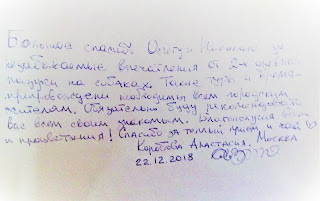 Большое спасибо Осетди Николаю за
незабываемые впечатления от 2-х дневной
поездки на собаках. Такие туры и время-
припровождени необходимы всем городским
жителям. Обязательно буду рекомендовать
вас всем своим знакомым. Благополучия Вам
и процветания! Спасибо за теплый прием и чай
Коробова Анастасия. Москва
22.12.2018